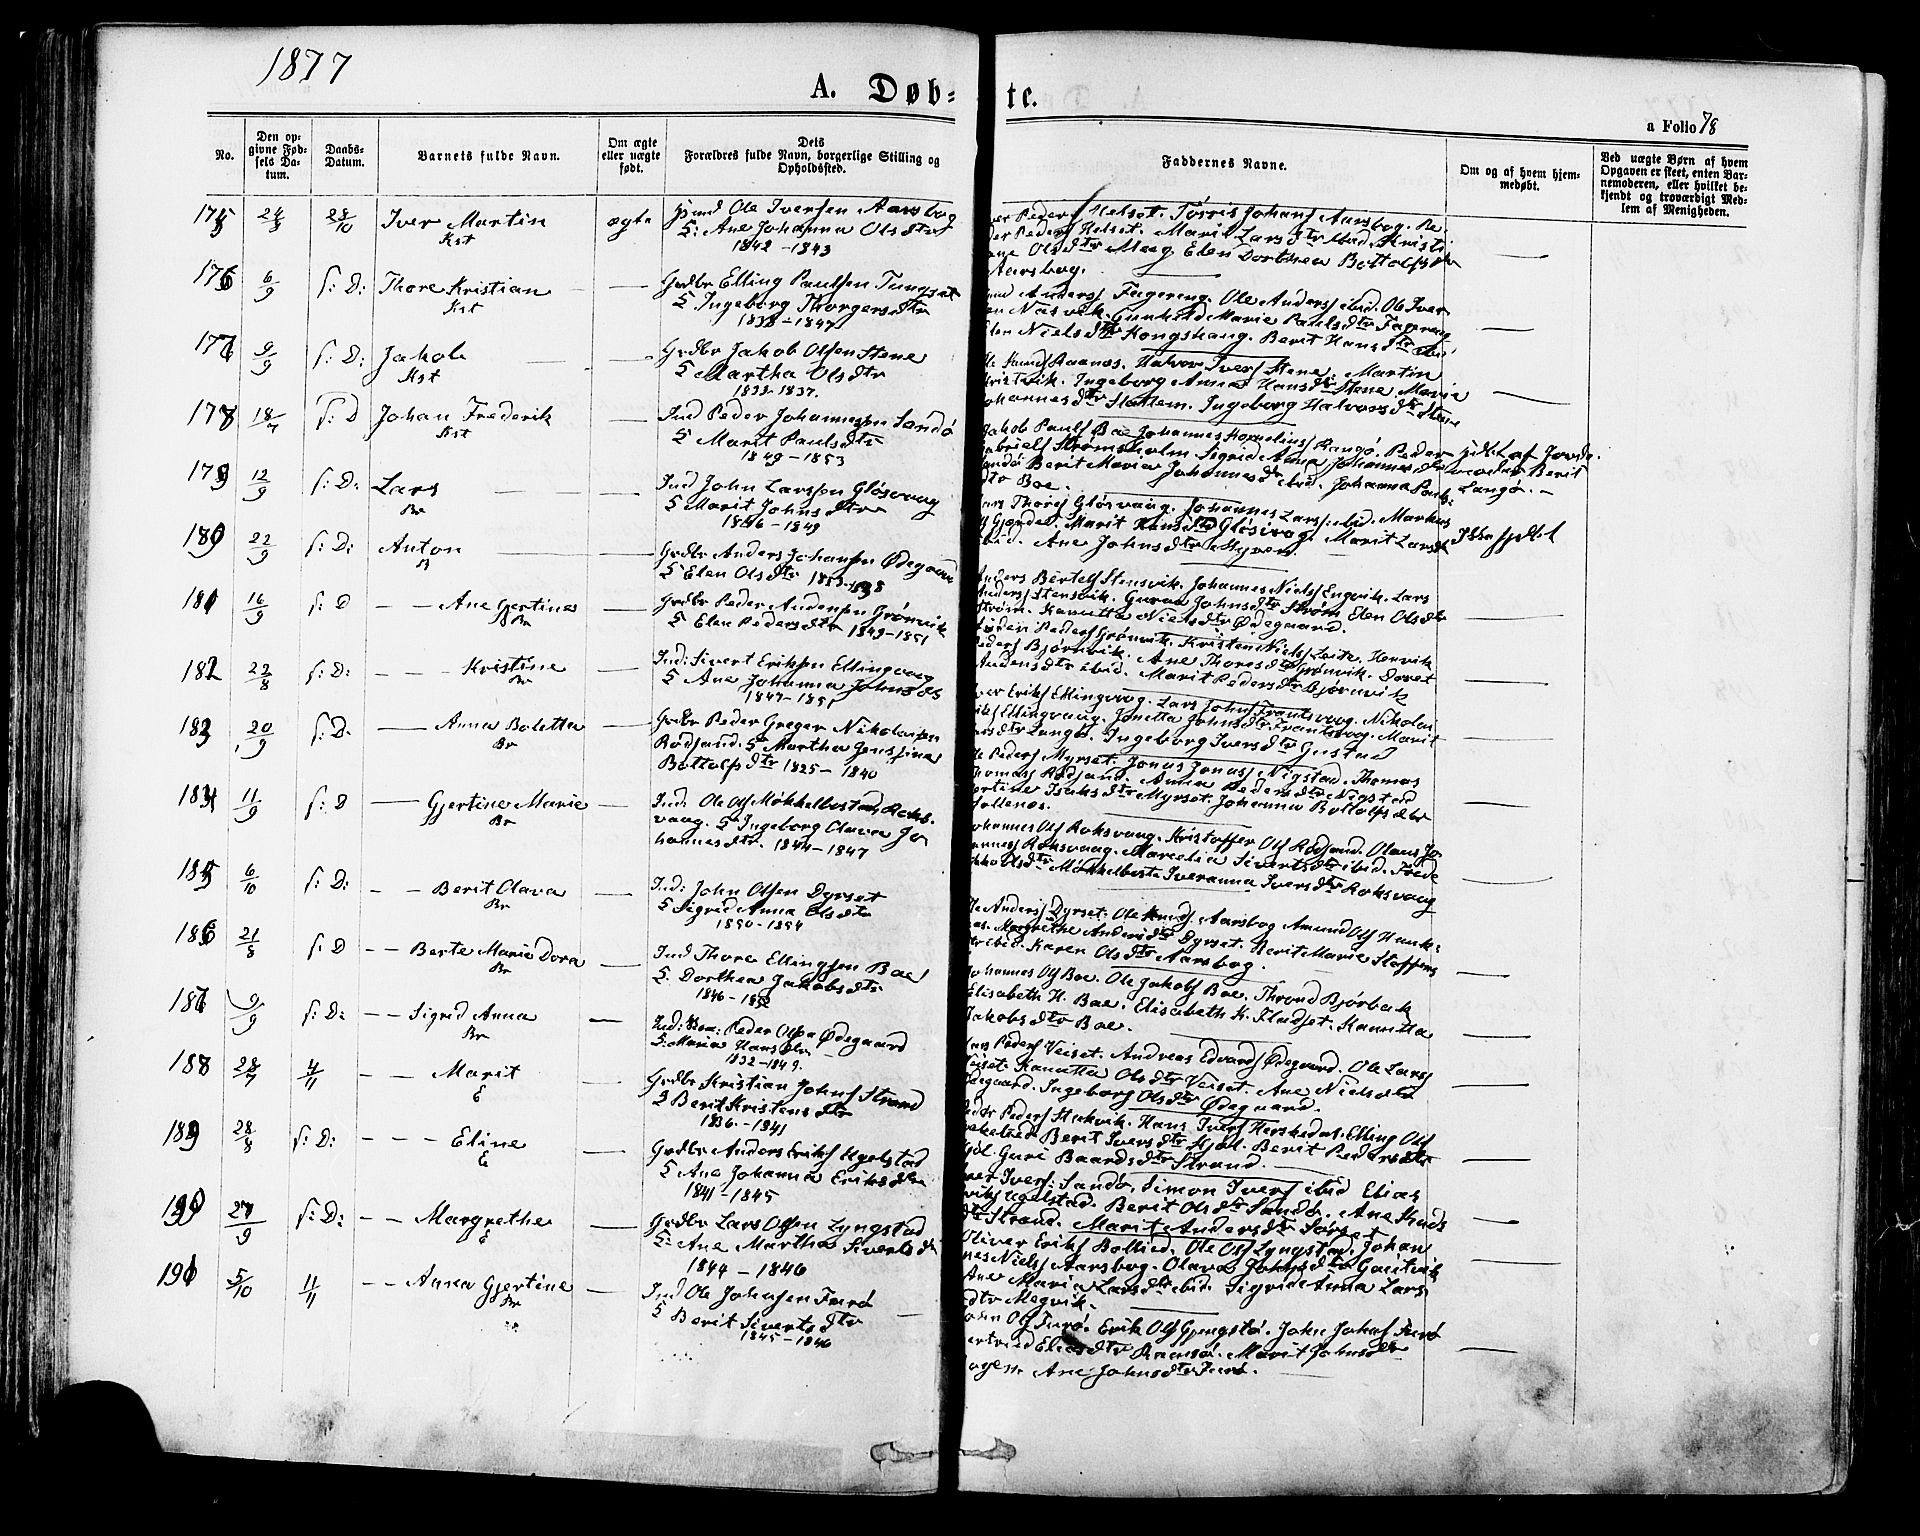 1877
A. Døb-
te.
a Folio 78
No.
Den op-
givne Fød-
sels Da-
tum.
Daabs-
Datum.
Barnets fulde Navn.
Om ægte
eller uægte
født.
Dets
Forældres fulde Navn, borgerlige Stilling og
Opholdssted.
Faddernes Navne.
Om og af hvem hjem-
medøbt.
Ved uægte Børn af hvem
Opgaven er skeet, enten Bar-
nemoderen, eller hvilket be-
kjendt og troværdigt Med-
lem af Menigheden.
175 24/8 28/10 Iver Martin ægte
Kst
Ole Iversen Aarsbog
Ane Johanna Olsdtr
1842 – 1843
Peders Helset. Tørris Johans Aarsbog. Pe-
der Peders Helset. Marit Larsdtr ibid. Kristi
ane Olsdtr Meeg Elen Dorthea Bottolfsdtr
Aarsbog.
176 6/9 s: D: Thore Kristian
Kst
Grdbr Elling Paulsen Tungset
Ingeborg Thorgersdtr
1838 – 1847
Anders Fagereng. Ole Anders ibid. Ole Iver
Nasvik. Gunhild Marie Paulsdtr Fagereng
Elen Nielsdtr Kongshaug. Berit Hansdtr ibid
177 9/9 s: D: Jakob
Kst
Grdbr Jakob Olsen Stene
Martha Olsdtr
1833-1837.
Halvor Ivers Stene. Martin
Kristvik. Ingeborg Anna Hansdtr Stene Marie
Johannesdtr Ingeborg Halvorsdtr Stene
178 18/7 s: D Johan Frederik
Kst
Ind Peder Johannessen Sandø
Marit Paulsdtr
1849 – 1853
Jakob Pauls Boe Johannes Kornelius Langø. Peder
Gabriels Strømsholm. Sigrid Anna Johannesdtr
Sandø Berit Marie Johannesdtr ibid. Johanna Pauls
dtr Boe.
hjdt af Jorde-
moder Berit
Langø. –
179 12/9 s: D: Lars
Br
Ind John Larssen Gløsvaag
Marit Johnsdtr
1846 – 1849
Lars Thores Gløsvaag. Johannes Lars ibid. Markus
Gjendal. Marit Hansdtr Gløsvaag. Marit Larsdtr
ibid. Ane Johnsdtr Myren
Ikke hjdbt
180 22/9 s: D: Anton
B
Grdbr Anders Johansen Ødegaard
Elen Olsdtr
Anders Bertels Stensvik. Johannes Niels Engvik. Lars
Anders Stensvik. Guraa Johnsdtr Strøm Elen Olsdtr
Strøm. Hanette Nielsdtr Ødegaard.
181 16/9 s: D Ane Gjertine
Br
Grdbr Peder Andersen Grønvik
Elen Pedersdtr 1849–1851
Peders Grønvik. Kristen Niels Leite. Henrik
Peders Bjørnvik. Ane Thoresdtr Grønvik. Doret
Andersdtr ibid. Marit Pedersdtr Bjørnvik
182 22/8 s: D: Kristine
Br
Ind: Sivert Eriksen Ellingvaag
Ane Johanna Johnsdtr
1847–1851
Iver Eriks Ellingvaag. Lars Johns Frantsvaag. Nikolai
Eriks Ellingvaag. Jonetta Johnsdtr Frantsvaag. Marit
Langø. Ingeborg Iversdtr Gustad
183 20/9 s: D. Anna Boletta
Br
Grdbr Peder Greger Nikolaisen
Rødsand. Martha Jensine
Bottolfsdtr 1825 – 1840
Ole Peders Myrset. Jonas Jonas Nigstad. Thomas
Thomas Rødsand. Anna Pedersdtr Nigstad
Isaksdtr Myrset. Johanna Bottolfsdtr
184 11/9 s: D Gjertine Marie
Br
Ind: Ole Ols Møkkelbostad, Roks-
vaag. Ingeborg Olava Jo
hannesdtr. 1844 – 1847
Johannes Ols Roksvaag. Kristoffer Ols Rødsand. Olaus Jo
hannes Roksvaag. Marcelia Sivertsdtr ibid. Frede
rikke Olsdtr Møkkelbost. Iveranna Iversdtr Roksvaag
185 6/10 s: D: Berit Olava
Br
Ind: John Olsen Dyrset
Sigrid Anna Olsdtr
1850 – 1854
Ole Anders Dyrset. Ole Knuds Aarsbog Amund Ols
Margrethe Andersdtr Dyrset. Berit Marie Steffens
dtr ibid. Karen Olsdtr Aarsbog.
186 21/8 s: D Berte Marie Dora
Br
Ind Thore Ellingsen Boe
Dorthea Jakobsdtr
1846 – 1852
Johannes Ols Boe. Ole Jakobs Boe. Thrond Bjørbak
Elisabeth H. Boe. Elisabeth K. Fladset. Hannitta
Jakobsdtr Boe.
187 9/9 s: D: Sigrid Anna
Br
Ind: Peder Olsen Ødegaard
Maria Hansdtr
1832 – 1849.
Lars Peders Veiset. Andreas Edvards Ødegaard. Ole Lars
Veiset. Hanitta Olsdtr Veiset. Ane Nielsdtr
Ødegaard. Ingeborg Olsdtr Ødegaard.
188 28/7 4/11 Marit
E
Grdbr Kristian Johns Strand
Berit Kristensdtr
1836. – 1841
Peder Peders Stokvik. Hans Ivers Herskedal. Elling Ols
Berit Iversdtr Hjøl. Berit Pedersdtr
Hjøl. Guri Baardsdtr Strand.
189 28/8 s: D: Eline
E
Grdbr Anders Eriks Ugelstad
Ane Johanna Eriksdtr
1841 – 1845
Ivers Sandø. Simon Ivers ibid Elias
Eriks Ugelstad. Berit Olsdtr Sandø. Ane Knuds
dtr Strand. Marit Andersdtr Sørset
190 27/9 s: D: Margrethe
E
Grdbr Lars Olsen Lyngstad
Ane Martha Sivertsdtr
1844 – 1846
Oliver Eriks Bollied. Ole Ols Lyngstad. Johan
nes Niels Aarsbog. Olava Johnsdtr Gautvik
Ane Maria Larsdtr ibid. Sigrid Anna Lars
dtr Megvik.
191 5/10 4/11 Anna Gjertine
Br
Ind Ole Johnsen Furø
Berit Sivertsdtr
1845 – 1846
John Ols Furø. Erik Ols Gjengstø. John Johns Furø
Eliasdtr Ramsø. Marit Johnsdtr
Ane Johnsdtr Furø.